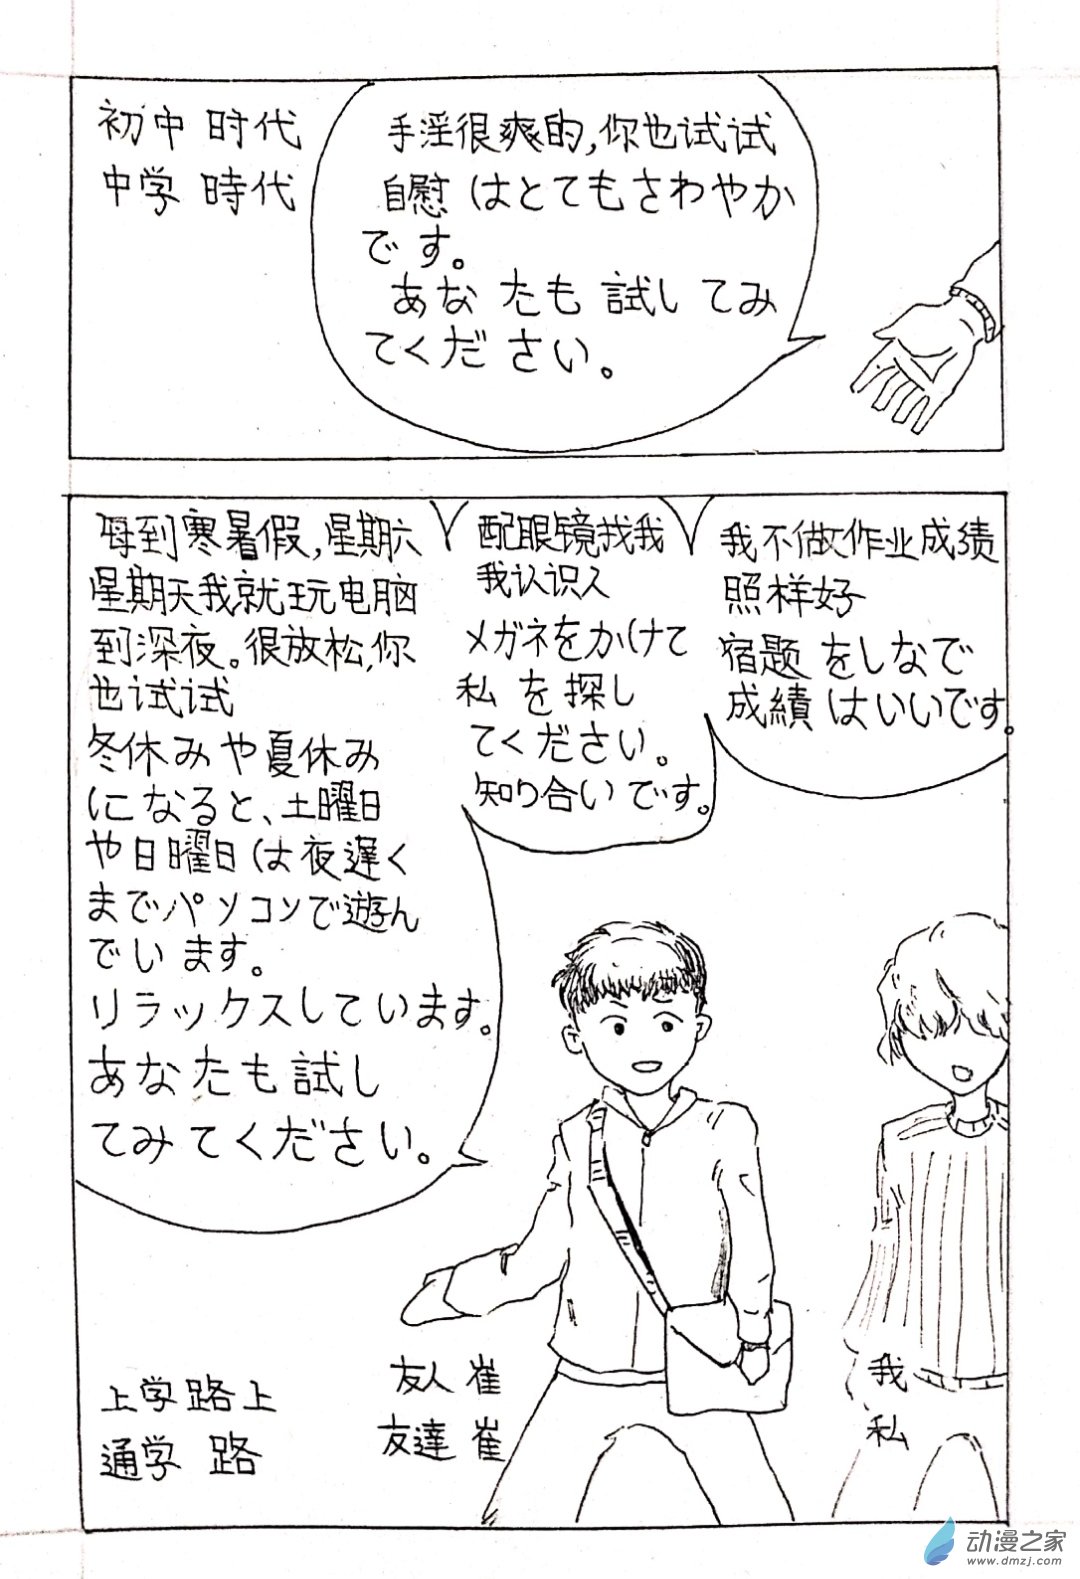 初中 时代
中学 時代
手淫很爽的,你也试试
自慰 はとてもさわやか
です。
あなたも 試してみ
てください。
每到寒暑假,星期六
星期天我就玩电脑
到深夜。很放松,你
也试试
冬休みや夏休み
になると、土曜日
や日曜日は夜遅く
までパソコンで遊ん
でいます。
リラックスしています。
あなたも試し
てみてください。
配眼镜找我
我认识人
メガネをかけて
私を探し
てください。
知り合いです。
我不做作业成绩
照样好
宿題をしなで
成績はいいです。
上学路上
通学 路
友人 崔
友達 崔
我
私
动漫之家
www.dmzj.com